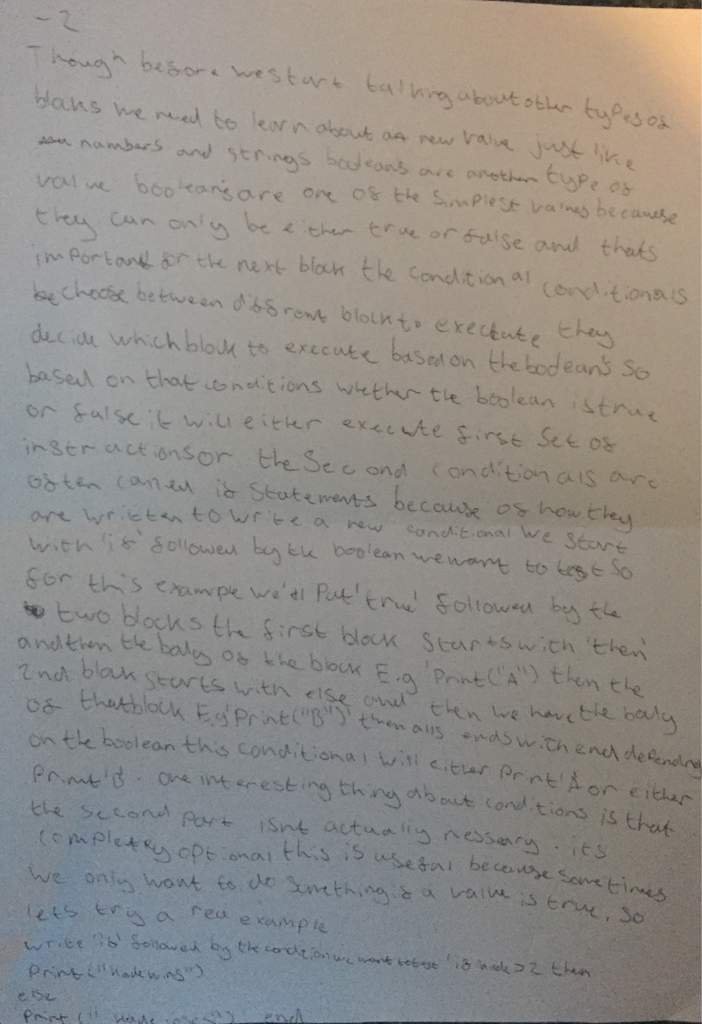 -2
Though before we start talking about other types of
bloks we need to learn about a new value just like
numbers and strings booleans are another type of
value boolean's are one of the simplest values because
they can only be either true or false and thats
important for the next block the conditional conditionals
choose between different block to exectute they
decide which block to execute based on the boolean's so
based on that conditions whether the boolean is true
or false it will either execute first set of
instructions or the second conditionals are
often called if statements because of how they
are written to write a new conditional we start
with 'if' followed by the boolean we want to test so
for this example we'll put 'true' followed by the
two blocks the first block starts with 'then'
and then the body of the block E.g 'Print("A") then the
2nd block starts with else and then we have the body
of that block E.g 'Print("B")' then alls ends with end depending
on the boolean this conditional will either print 'A or either
Print 'B'. one interesting thing about conditions is that
the second part isnt actually nessary. its
completey optional this is useful because sometimes
we only want to do something if a value is true, so
lets try a real example
write 'if' followed by the condition we want to test 'if > 2 then
Print("
else
print (" ") end